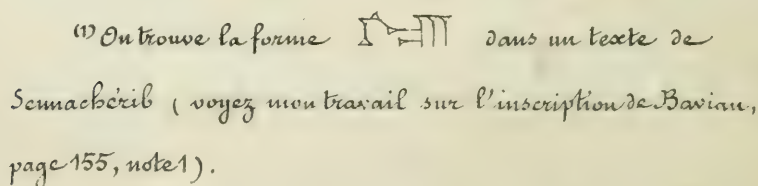 (1) On trouve la forme dans un texte de
Sennachérib (voyez mon travail sur l'inscription de Bavian,
page 155, note 1).